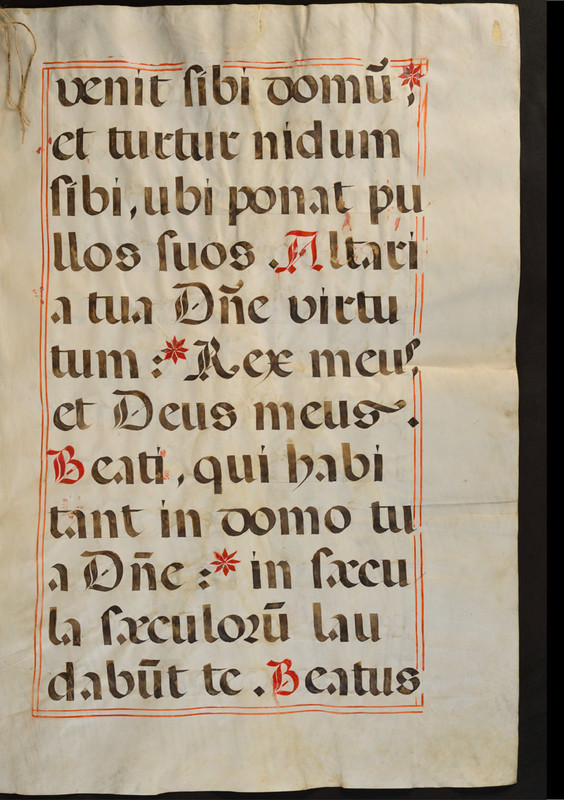 venit sibi domũ *,
et turtur nidum
sibi, ubi ponat pu
llos suos. Altari
a tua Dñe virtu
tum :* Rex meus,
et Deus meus.
Beati, qui habi
tant in domo tu
a Dñe :* in sæcu
la sæculorũ lau
dabũt te. Beatus